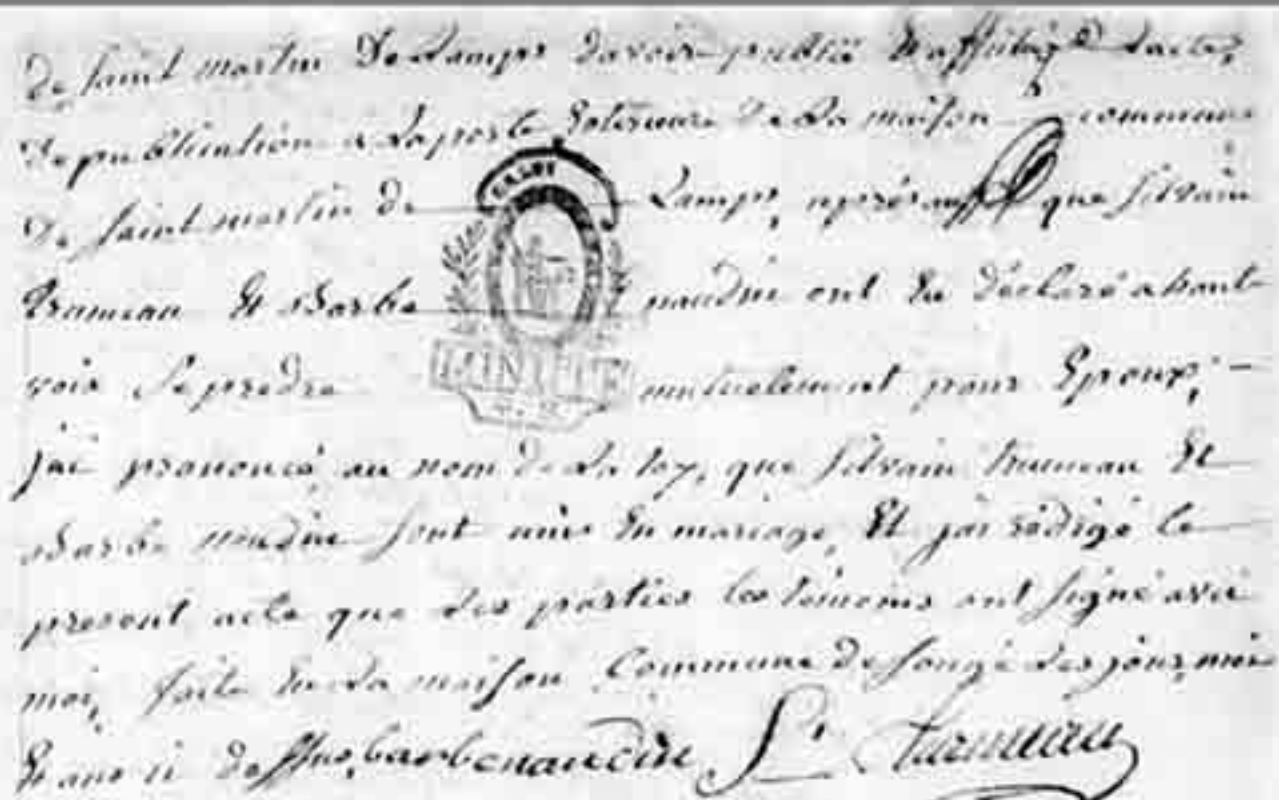 de saint martin De Lamps davoir publié et affiché Lacte
de publication a La porte Exterieure de La maison commune
de saint martin de Lamps, après aussi que silvain
truneau Et Barbe naudin ont Eu declaré a haute
voix se predre mutuelement pour Epoux,
jai prononcé au nom de La loy, que silvain truneau Et
Barbe naudin sont unis En mariage, Et jai rédigé le
present acte que Les parties les temoins ont signé avec
moi, faite En La maison Commune de sougé Les jour, moi
Et an ci dessus, barbe naudin S.